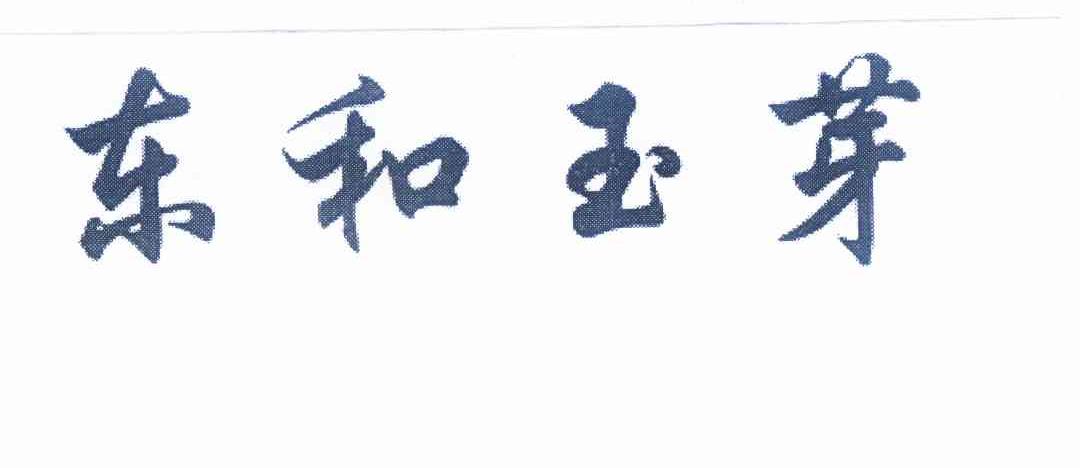 东和玉芽